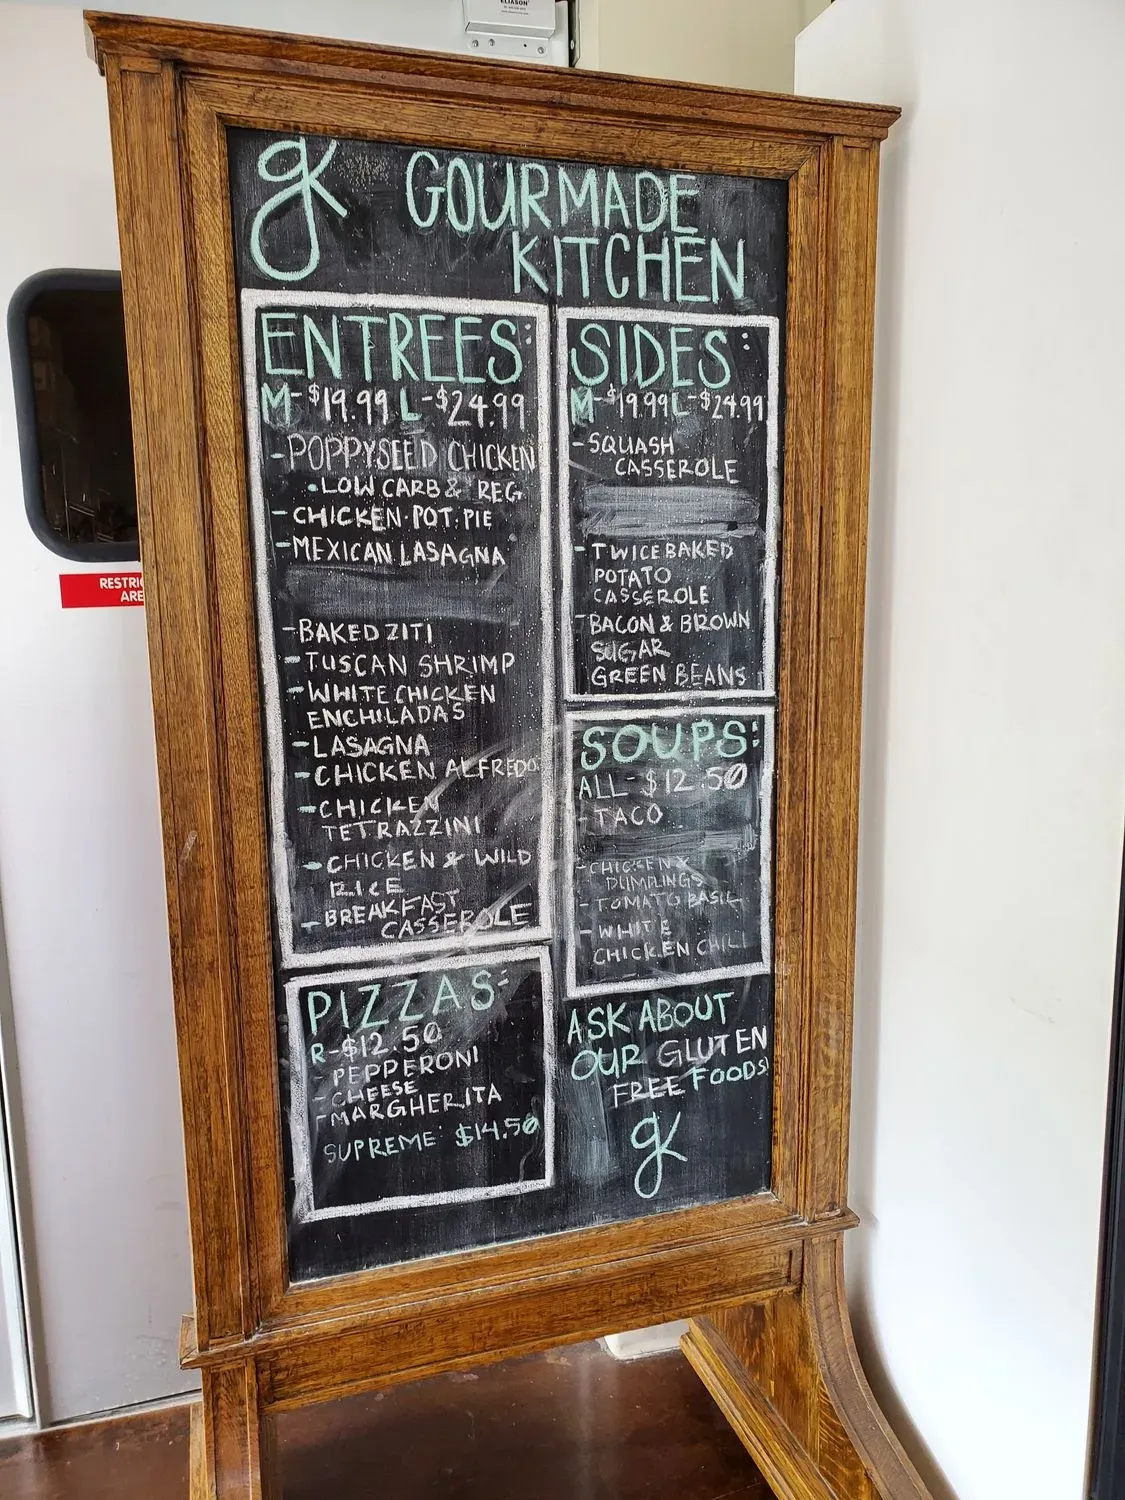 ELIASON
gk GOURMADE
KITCHEN
ENTREES:
M-$19.99 L-$24.99
-POPPYSEED CHICKEN
•LOW CARB & REG
-CHICKEN·POT·PIE
-MEXICAN LASAGNA
-BAKED ZITI
-TUSCAN SHRIMP
-WHITE CHICKEN
ENCHILADAS
-LASAGNA
-CHICKEN ALFREDO
-CHICKEN
TETRAZZINI
-CHICKEN & WILD
RICE
-BREAKFAST
CASSEROLE
PIZZAS:
R-$12.50
-PEPPERONI
-CHEESE
-MARGHERITA
SUPREME $14.50
SIDES:
M-$19.99 L-$24.99
-SQUASH
CASSEROLE
-TWICE BAKED
POTATO
CASSEROLE
-BACON & BROWN
SUGAR
GREEN BEANS
SOUPS:
ALL-$12.50
-TACO
-CHICKEN &
DUMPLINGS
-TOMATO BASIL
-WHITE
CHICKEN CHILI
ASK ABOUT
OUR GLUTEN
FREE FOODS!
gk
RESTRIC
ARE